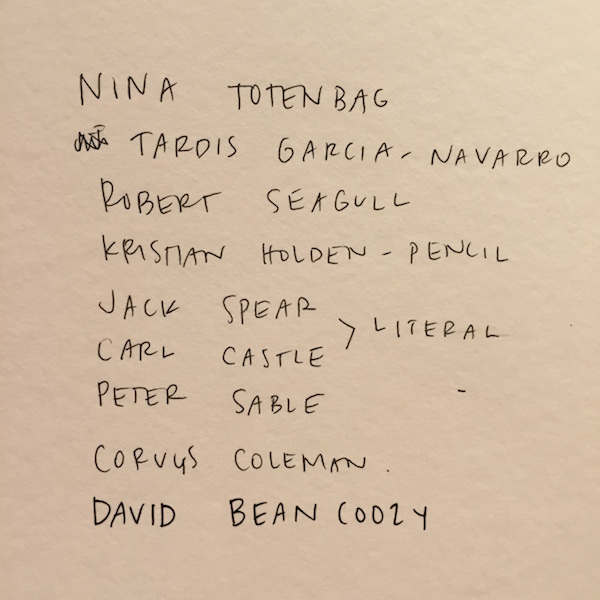 NINA TOTENBAG
TARDIS GARCIA-NAVARRO
ROBERT SEAGULL
KRISTIAN HOLDEN-PENCIL
JACK SPEAR
> LITERAL
CARL CASTLE
PETER SABLE
CORVUS COLEMAN.
DAVID BEANCOOZY